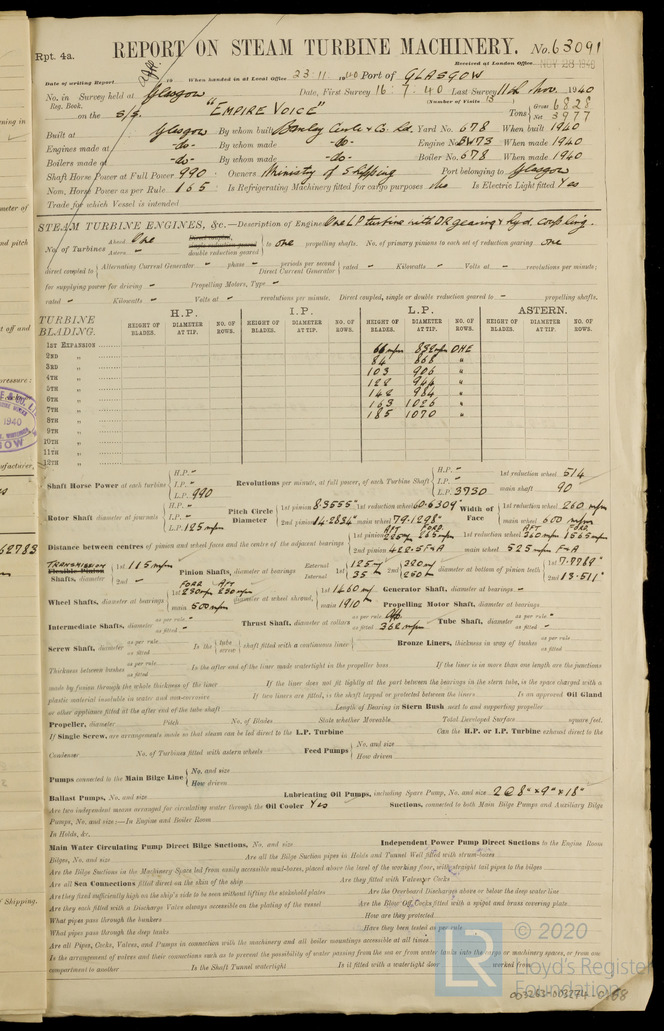 Rpt. 4a.
REPORT ON STEAM TURBINE MACHINERY. No. 63091
Received at London Office NOV 1940
Date of writing Report 19 When handed in at Local Office 23.11.1940 Port of GLASGOW
No. in Reg. Book. Survey held at Glasgow Date, First Survey 16.7.40 Last Survey 11th Nov. 1940
(Number of Visits 13)
on the S/S. "EMPIRE VOICE" Tons Gross 6828 Net 3977
Built at Glasgow By whom built Barclay Curle & Co. Ld. Yard No. 678 When built 1940
Engines made at -do- By whom made -do- Engine No. BW73 When made 1940
Boilers made at -do- By whom made -do- Boiler No. 678 When made 1940
Shaft Horse Power at Full Power 990 Owners Ministry of Shipping Port belonging to Glasgow
Nom. Horse Power as per Rule 165 Is Refrigerating Machinery fitted for cargo purposes No Is Electric Light fitted Yes
Trade for which Vessel is intended
STEAM TURBINE ENGINES, &c.—Description of Engines One L.P. turbine with D.R. gearing & hyd. coupling.
No. of Turbines Ahead One Astern - Direct coupled, single reduction geared double reduction geared to one propelling shafts. No. of primary pinions to each set of reduction gearing one
direct coupled to Alternating Current Generator - phase - periods per second Direct Current Generator rated - Kilowatts - Volts at - revolutions per minute;
for supplying power for driving - Propelling Motors, Type -
rated - Kilowatts - Volts at - revolutions per minute. Direct coupled, single or double reduction geared to - propelling shafts.
TURBINE BLADING. H.P. I.P. L.P. ASTERN.
HEIGHT OF BLADES. DIAMETER AT TIP. NO. OF ROWS. HEIGHT OF BLADES. DIAMETER AT TIP. NO. OF ROWS. HEIGHT OF BLADES. DIAMETER AT TIP. NO. OF ROWS. HEIGHT OF BLADES. DIAMETER AT TIP. NO. OF ROWS.
1ST EXPANSION 66 m/m 832 m/m ONE
2ND " 84 868 "
3RD " 103 906 "
4TH " 122 944 "
5TH " 142 984 "
6TH " 163 1026 "
7TH " 185 1070 "
8TH "
9TH "
10TH "
11TH "
12TH "
Shaft Horse Power at each turbine H.P. - I.P. - L.P. 990 Revolutions per minute, at full power, of each Turbine Shaft H.P. - I.P. - L.P. 3750 1st reduction wheel 514 main shaft 90
Rotor Shaft diameter at journals H.P. - I.P. - L.P. 125 m/m Pitch Circle Diameter 1st pinion 8.3555" 1st reduction wheel 60.6309" 2nd pinion 14.2834" main wheel 79.1298" Width of Face 1st reduction wheel 260 m/m main wheel 600 m/m
Distance between centres of pinion and wheel faces and the centre of the adjacent bearings 1st pinion AFT FORD. 265 m/m 2nd pinion 422.5 F&A 1st reduction wheel AFT 360 m/m FORD. 1565 m/m main wheel 525 m/m F&A
TRANSMISSION Flexible Pinion Shafts, diameter 1st 115 m/m 2nd - Pinion Shafts, diameter at bearings External 1st 125 m/m 2nd 320 m/m Internal 35 250 m diameter at bottom of pinion teeth 1st 7.9989" 2nd 13.511"
Wheel Shafts, diameter at bearings 1st FORD 230 m/m AFT 250 m/m main 500 m/m diameter at wheel shroud, 1st 1460 m/m main 1910 m/m Generator Shaft, diameter at bearings - Propelling Motor Shaft, diameter at bearings -
Intermediate Shafts, diameter as per rule - as fitted - Thrust Shaft, diameter at collars as per rule App. as fitted 362 m/m Tube Shaft, diameter as per rule - as fitted -
Screw Shaft, diameter as per rule as fitted Is the tube screw shaft fitted with a continuous liner Bronze Liners, thickness in way of bushes as per rule as fitted
Thickness between bushes as per rule as fitted Is the after end of the liner made watertight in the propeller boss If the liner is in more than one length are the junctions
made by fusion through the whole thickness of the liner If the liner does not fit tightly at the part between the bearings in the stern tube, is the space charged with a
plastic material insoluble in water and non-corrosive If two liners are fitted, is the shaft lapped or protected between the liners Is an approved Oil Gland
or other appliance fitted at the after end of the tube shaft Length of Bearing in Stern Bush next to and supporting propeller
Propeller, diameter Pitch No. of Blades State whether Moveable Total Developed Surface square feet.
If Single Screw, are arrangements made so that steam can be led direct to the L.P. Turbine Can the H.P. or I.P. Turbine exhaust direct to the
Condenser No. of Turbines fitted with astern wheels Feed Pumps No. and size How driven
Pumps connected to the Main Bilge Line No. and size How driven
Ballast Pumps, No. and size Lubricating Oil Pumps, including Spare Pump, No. and size 2 @ 8" × 9" × 18"
Are two independent means arranged for circulating water through the Oil Cooler Yes Suctions, connected to both Main Bilge Pumps and Auxiliary Bilge
Pumps, No. and size:—In Engine and Boiler Room
In Holds, &c.
Main Water Circulating Pump Direct Bilge Suctions, No. and size Independent Power Pump Direct Suctions to the Engine Room
Bilges, No. and size Are all the Bilge Suction pipes in Holds and Tunnel Well fitted with strum-boxes
Are the Bilge Suctions in the Machinery Space led from easily accessible mud-boxes, placed above the level of the working floor, with straight tail pipes to the bilges
Are all Sea Connections fitted direct on the skin of the ship Are they fitted with Valves or Cocks
Are they fixed sufficiently high on the ship's side to be seen without lifting the stokehold plates Are the Overboard Discharges above or below the deep water line
Are they each fitted with a Discharge Valve always accessible on the plating of the vessel Are the Blow Off Cocks fitted with a spigot and brass covering plate
What pipes pass through the bunkers How are they protected
What pipes pass through the deep tanks Have they been tested as per rule
Are all Pipes, Cocks, Valves, and Pumps in connection with the machinery and all boiler mountings accessible at all times
Is the arrangement of valves and their connections such as to prevent the possibility of water passing from the sea or from water tanks into the cargo or machinery spaces, or from one
compartment to another Is the Shaft Tunnel watertight Is it fitted with a watertight door worked from
LR © 2020
Lloyd's Register
Foundation
003263-003274-0168